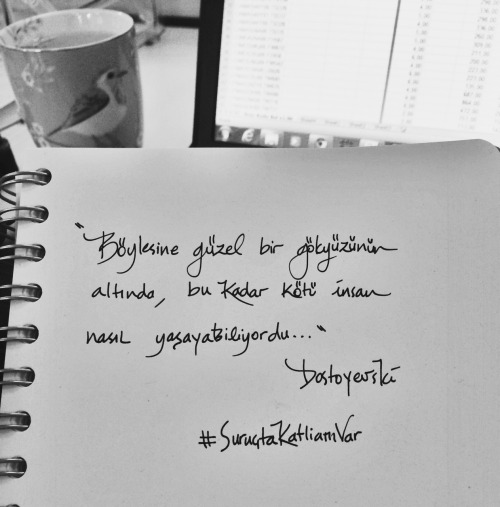 "Böylesine güzel bir gökyüzünün
altında, bu kadar kötü insan
nasıl yaşayabiliyordu..."
Dostoyevski
#SuruçtaKatliamVar